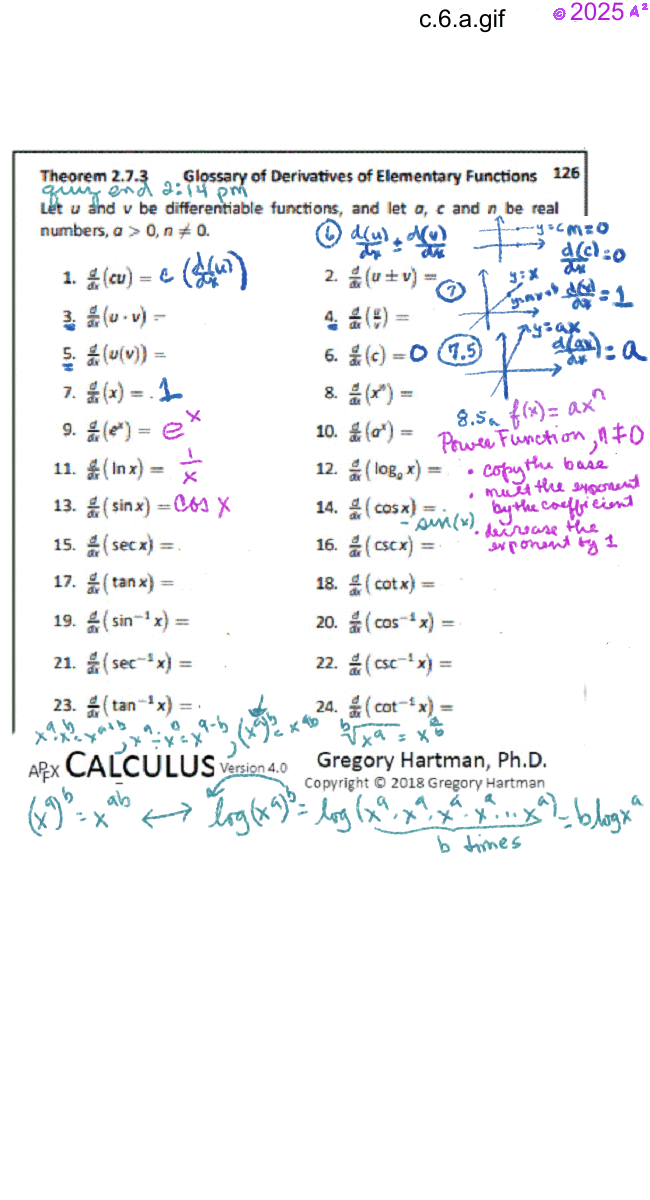 c.6.a.gif © 2025 A²
Theorem 2.7.3 Glossary of Derivatives of Elementary Functions 126
quiz end 2:14 pm
Let u and v be differentiable functions, and let a, c and n be real
numbers, a > 0, n ≠ 0.
⑥ d(u)/dx ± d(v)/dx
y=c m=0
d(c)/dx = 0
1. d/dx (cu) = c (d(u)/dx)
2. d/dx (u ± v) =
⑦ y=x
d(x)/dx = 1
3. d/dx (u · v) =
4. d/dx (u/v) =
7.5 y=ax
d(ax)/dx = a
5. d/dx (u(v)) =
6. d/dx (c) = 0
7. d/dx (x) = 1
8. d/dx (xⁿ) =
8.5a f(x) = axⁿ
Power Function, n ≠ 0
• copy the base
• mult the exponent
by the coefficient
• decrease the
exponent by 1
9. d/dx (eˣ) = eˣ
10. d/dx (aˣ) =
11. d/dx (ln x) = 1/x
12. d/dx (logₐ x) =
13. d/dx (sin x) = cos x
14. d/dx (cos x) = - sin(x)
15. d/dx (sec x) =
16. d/dx (csc x) =
17. d/dx (tan x) =
18. d/dx (cot x) =
19. d/dx (sin⁻¹ x) =
20. d/dx (cos⁻¹ x) =
21. d/dx (sec⁻¹ x) =
22. d/dx (csc⁻¹ x) =
23. d/dx (tan⁻¹ x) =
24. d/dx (cot⁻¹ x) =
xᵃ·xᵇ=xᵃ⁺ᵇ, xᵃ÷xᵇ=xᵃ⁻ᵇ, (xᵃ)ᵇ=xᵃᵇ ᵇ√xᵃ = x^(a/b)
APEX CALCULUS Version 4.0 Gregory Hartman, Ph.D.
Copyright © 2018 Gregory Hartman
(xᵃ)ᵇ = xᵃᵇ ⟷ log(xᵃ)ᵇ = log(xᵃ·xᵃ·xᵃ·xᵃ...xᵃ) = b log xᵃ
b times